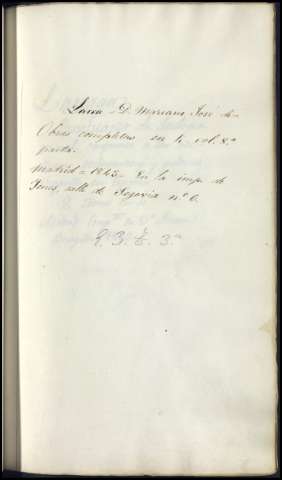 Larra - D. Mariano José de -
Obras completas en 4. vol. 8.º
pasta.
Madrid - 1843 - En la imp. de
Yenes, calle de Segovia n.º 6.
3.